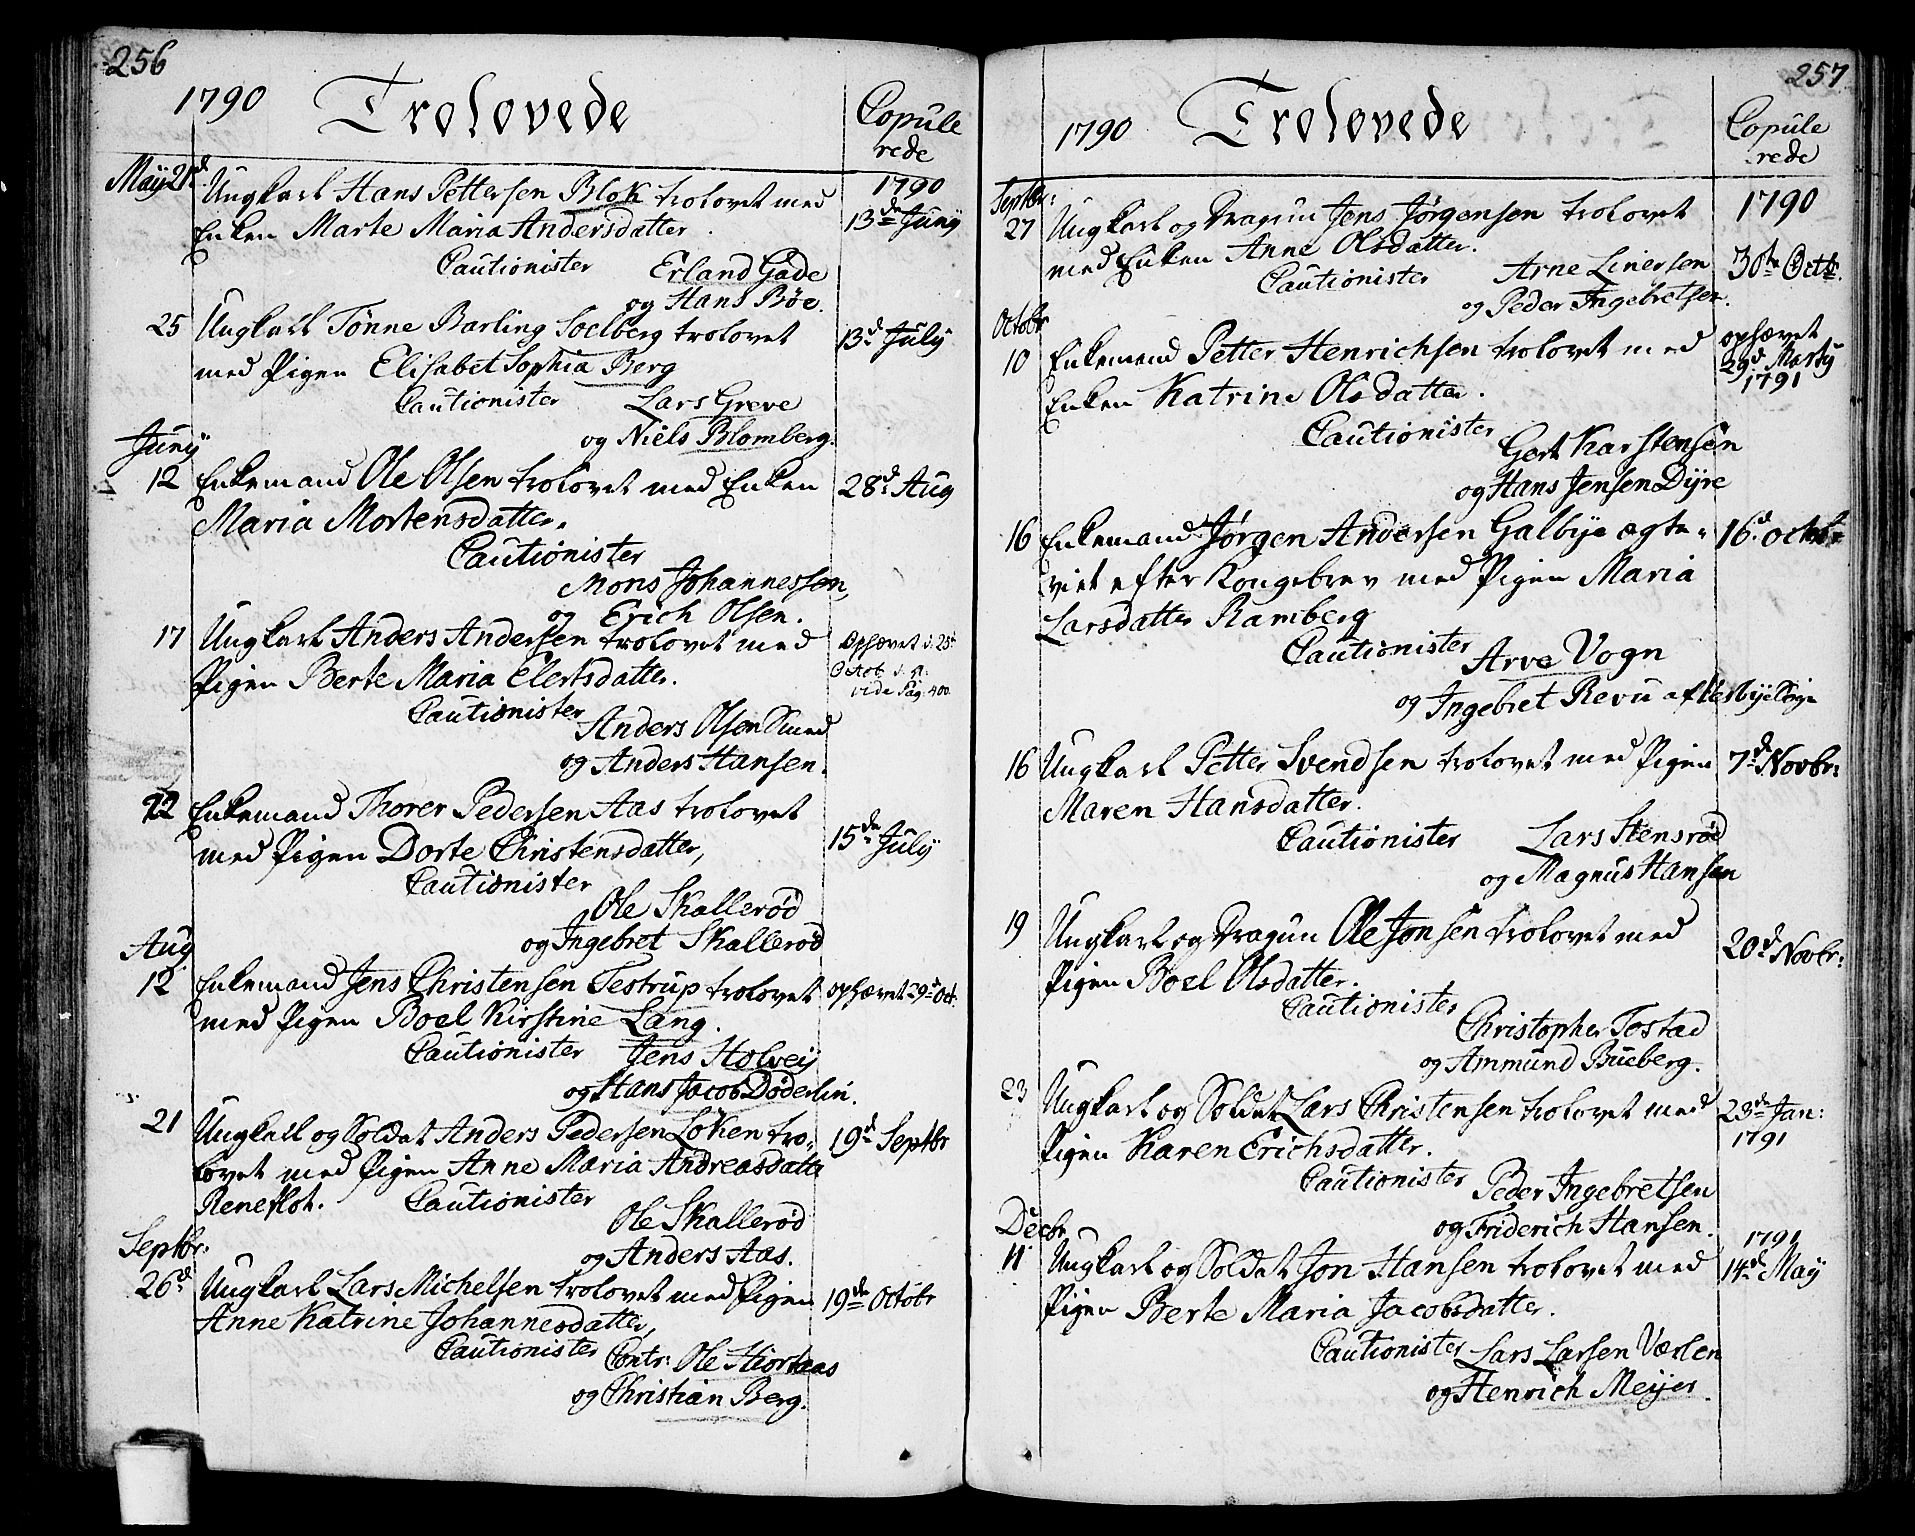 256
1790 Trolovede
Copule
rede
May 21d Ungkarl Hans Pettersen Blok trolovet med
Enken Marte Maria Andersdatter.
1790
13de Juny
Cautionister Erland Gade
og Hans Böe.
25 Ungkarl Tönne Barling Soelberg trolovet
med Pigen Elisabet Sophia Berg
13d July
Cautionister Lars Greve
og Niels Blomberg.
Juny
12 Enkemand Ole Olsen trolovet med Enken
Maria Mortensdatter.
28d Aug
Cautionister
Mons Johannessen,
og Erich Olsen.
17 Ungkarl Anders Andersen trolovet med
Pigen Berte Maria Elertsdatter.
Ophævet d. 25d
Octob
vide Pag. 400
Cautionister
Anders Olsen Smed
og Anders Hansen.
22 Enkemand Thorer Pedersen Aas trolovet
med Pigen Dorte Christensdatter,
15de July
Cautionister
Ole Skalleröd
og Ingebret Skalleröd
Aug
12 Enkemand Jens Christensen Testrup trolovet
med Pigen Boel Kirstine Lang.
ophævet 29d Oct.
Cautionister Jens Holveij
og Hans Jacob Döderlin.
21 Ungkarl og Soldat Anders Pedersen Löken tro-
lovet med Pigen Anne Maria Andreasdatter
Reneflot.
19d Septbr
Cautionister
Ole Skalleröd
og Anders Aas.
Septbr:
26d Ungkarl Lars Michelsen trolovet med Pigen
Anne Katrine Johannesdatter,
19de Octobr
Cautionister Contr: Ole Hiortaas
og Christian Berg.
257
1790 Trolovede
Copule
rede
Septbr:
27 Ungkarl og Dragun Jens Jörgensen trolovet
med Enken Anne Olsdatter.
1790
30te Octb.
Cautionister Arne Linersen
og Peder Ingebretsen.
Octobr
10 Enkemand Petter Henrichsen trolovet med
Enken Katrine Olsdatter.
ophævet
29d Marty
1791
Cautionister
Gert Karstensen
og Hans Jensen Dyre
16 Enkemand Jörgen Andersen Galbye ægte-
viet efter Kongebrev med Pigen Maria
Larsdatter Ramberg
16d octobr
Cautionister
Arve Vogn
og Ingebret Revu af
16 Ungkarl Petter Svendsen trolovet med Pigen
Maren Hansdatter.
7d Novbr:
Cautionister Lars Stensröd
og Magnus Hansen
19 Ungkarl og Dragun Ole Jonsen trolovet med
Pigen Boel Olsdatter.
20d Novbr:
Cautionister
Christopher Tostad
og Ammund Bueberg.
23 Ungkarl og Soldat Lars Christensen trolovet med
Pigen Karen Erichsdatter.
23de Jan:
1791
Cautionister Peder Ingebretsen
og Friderich Hansen.
Decbr
11 Ungkarl og Soldat Jon Hansen trolovet med
Pigen Berte Maria Jacobsdatter.
1791
14de May
Cautionister Lars Larsen Værlen
og Henrich Meijer.